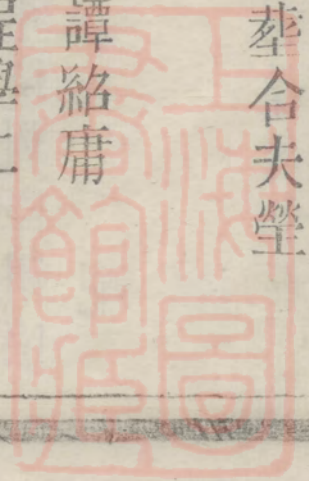 塟合夫塋
譚紹庸
上海圖
書館藏